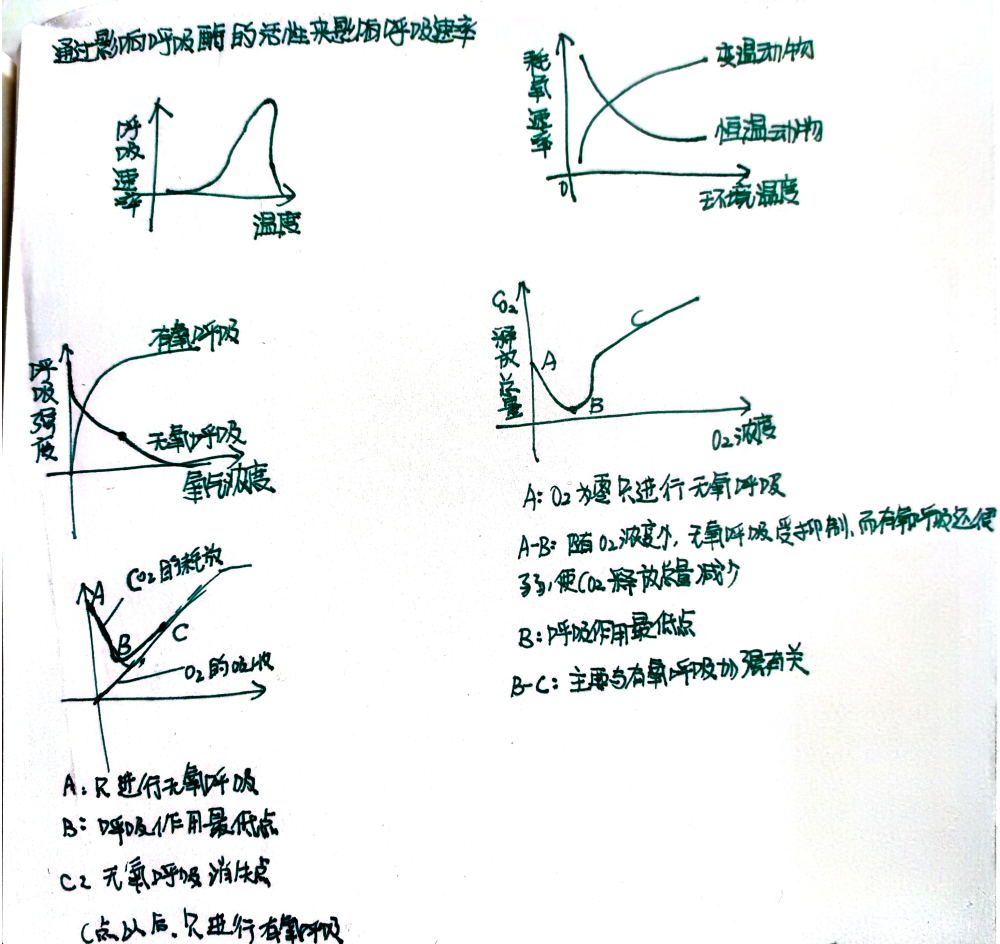 通过影响呼吸酶的活性来影响呼吸速率
呼吸速率
温度
耗氧速率
变温动物
恒温动物
0
环境温度
有氧呼吸
呼吸强度
无氧呼吸
氧气浓度
CO₂释放总量
A
B
C
O₂浓度
A: O₂为零只进行无氧呼吸
A-B: 随O₂浓度个, 无氧呼吸受抑制, 而有氧呼吸还很
弱, 使CO₂释放总量减少
B: 呼吸作用最低点
B-C: 主要与有氧呼吸加强有关
CO₂的释放
A
B
C
O₂的吸收
A: 只进行无氧呼吸
B: 呼吸作用最低点
C: 无氧呼吸消失点
C点以后, 只进行有氧呼吸